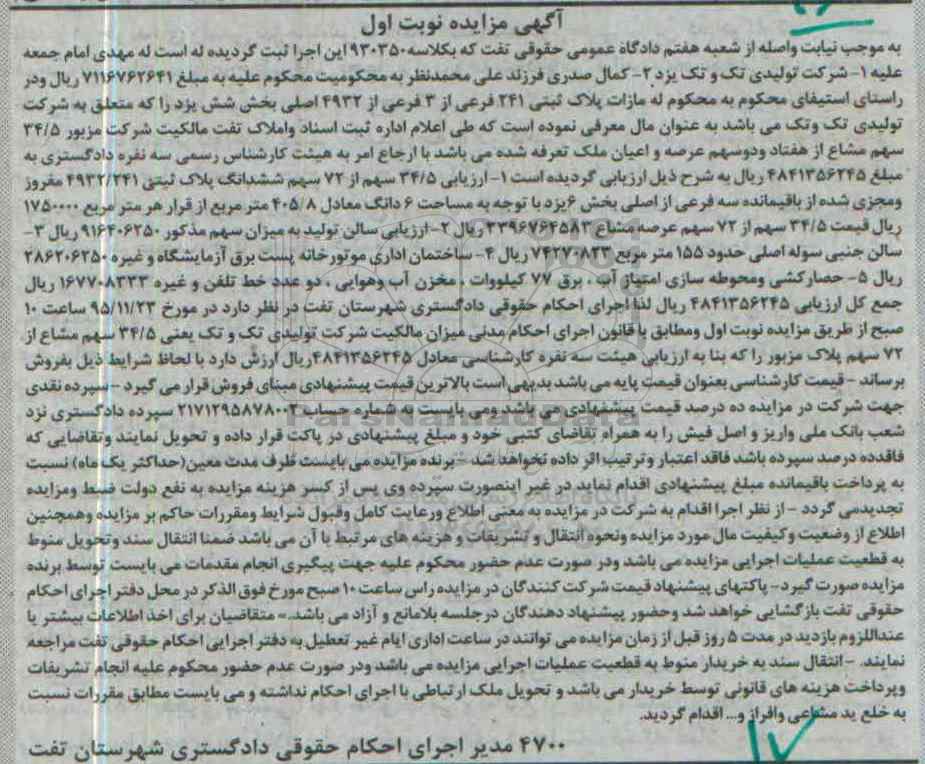 آگهی مزایده نوبت اول
به موجب نیابت واصله از شعبه هفتم دادگاه عمومی حقوقی تفت که بکلاسه ۹۳۰۳۵۰ این اجرا ثبت گردیده له است له مهدی امام جمعه
علیه ۱- شرکت تولیدی تک و تک یزد ۲- کمال صدری فرزند علی محمدنظر به محکومیت محکوم علیه به مبلغ ۷۱۱۶۷۶۲۶۴۱ ریال ودر
راستای استیفای محکوم به محکوم له مازات پلاک ثبتی ۲۴۱ فرعی از ۳ فرعی از ۴۹۳۲ اصلی بخش شش یزد را که متعلق به شرکت
تولیدی تک وتک می باشد به عنوان مال معرفی نموده است که طی اعلام اداره ثبت اسناد واملاک تفت مالکیت شرکت مزبور ۳۴/۵
سهم مشاع از هفتاد ودوسهم عرصه و اعیان ملک تعرفه شده می باشد با ارجاع امر به هیئت کارشناس رسمی سه نفره دادگستری به
مبلغ ۴۸۴۱۳۵۶۲۴۵ ریال به شرح ذیل ارزیابی گردیده است ۱- ارزیابی ۳۴/۵ سهم از ۷۲ سهم ششدانگ پلاک ثبتی ۴۹۳۲/۲۴۱ مفروز
ومجزی شده از باقیمانده سه فرعی از اصلی بخش ۶یزد با توجه به مساحت ۶ دانگ معادل ۴۰۵/۸ متر مربع از قرار هر متر مربع ۱۷۵۰۰۰۰
ریال قیمت ۳۴/۵ سهم از ۷۲ سهم عرصه مشاع ۳۳۹۶۷۶۴۵۸۳ ریال ۲-ارزیابی سالن تولید به میزان سهم مذکور ۹۱۶۴۰۶۲۵۰ ریال ۳-
سالن جنبی سوله اصلی حدود ۱۵۵ متر مربع ۷۴۲۷۰۸۳۳ ریال ۴- ساختمان اداری موتورخانه پست برق آزمایشگاه و غیره ۲۸۶۲۰۶۲۵۰
ریال ۵- حصارکشی ومحوطه سازی امتیاز آب ، برق ۷۷ کیلووات ، مخزن آب وهوایی ، دو عدد خط تلفن و غیره ۱۶۷۷۰۸۳۳۳ ریال
جمع کل ارزیابی ۴۸۴۱۳۵۶۲۴۵ ریال لذا اجرای احکام حقوقی دادگستری شهرستان تفت در نظر دارد در مورخ ۹۵/۱۱/۲۳ ساعت ۱۰
صبح از طریق مزایده نوبت اول ومطابق با قانون اجرای احکام مدنی میزان مالکیت شرکت تولیدی تک و تک یعنی ۳۴/۵ سهم مشاع از
۷۲ سهم پلاک مزبور را که بنا به ارزیابی هیئت سه نفره کارشناسی معادل ۴۸۴۱۳۵۶۲۴۵ریال ارزش دارد با لحاظ شرایط ذیل بفروش
برساند - قیمت کارشناسی بعنوان قیمت پایه می باشد بدیهی است بالاترین قیمت پیشنهادی مبنای فروش قرار می گیرد -سپرده نقدی
جهت شرکت در مزایده ده درصد قیمت پیشنهادی می باشد ومی بایست به شماره حساب ۲۱۷۱۲۹۵۸۷۸۰۰۲ سپرده دادگستری نزد
شعب بانک ملی واریز و اصل فیش را به همراه تقاضای کتبی خود و مبلغ پیشنهادی در پاکت قرار داده و تحویل نمایند وتقاضایی که
فاقدده درصد سپرده باشد فاقد اعتبار وترتیب اثر داده نخواهد شد - برنده مزایده می بایست ظرف مدت معین(حداکثر یک ماه) نسبت
به پرداخت باقیمانده مبلغ پیشنهادی اقدام نماید در غیر اینصورت سپرده وی پس از کسر هزینه مزایده به نفع دولت ضبط ومزایده
تجدیدمی گردد - از نظر اجرا اقدام به شرکت در مزایده به معنی اطلاع ورعایت کامل وقبول شرایط ومقررات حاکم بر مزایده وهمچنین
اطلاع از وضعیت وکیفیت مال مورد مزایده ونحوه انتقال و تشریفات و هزینه های مرتبط با آن می باشد ضمنا انتقال سند وتحویل منوط
به قطعیت عملیات اجرایی مزایده می باشد ودر صورت عدم حضور محکوم علیه جهت پیگیری انجام مقدمات می بایست توسط برنده
مزایده صورت گیرد- پاکتهای پیشنهاد قیمت شرکت کنندگان در مزایده راس ساعت ۱۰ صبح مورخ فوق الذکر در محل دفتر اجرای احکام
حقوقی تفت بازگشایی خواهد شد وحضور پیشنهاد دهندگان درجلسه بلامانع و آزاد می باشد.- متقاضیان برای اخذ اطلاعات بیشتر یا
عنداللزوم بازدید در مدت ۵ روز قبل از زمان مزایده می توانند در ساعت اداری ایام غیر تعطیل به دفتر اجرایی احکام حقوقی تفت مراجعه
نمایند. -انتقال سند به خریدار منوط به قطعیت عملیات اجرایی مزایده می باشد ودر صورت عدم حضور محکوم علیه انجام تشریفات
وپرداخت هزینه های قانونی توسط خریدار می باشد و تحویل ملک ارتباطی با اجرای احکام نداشته و می بایست مطابق مقررات نسبت
به خلع ید مشاعی وافراز و... اقدام گردید.
۴۷۰۰ مدیر اجرای احکام حقوقی دادگستری شهرستان تفت
۱۷